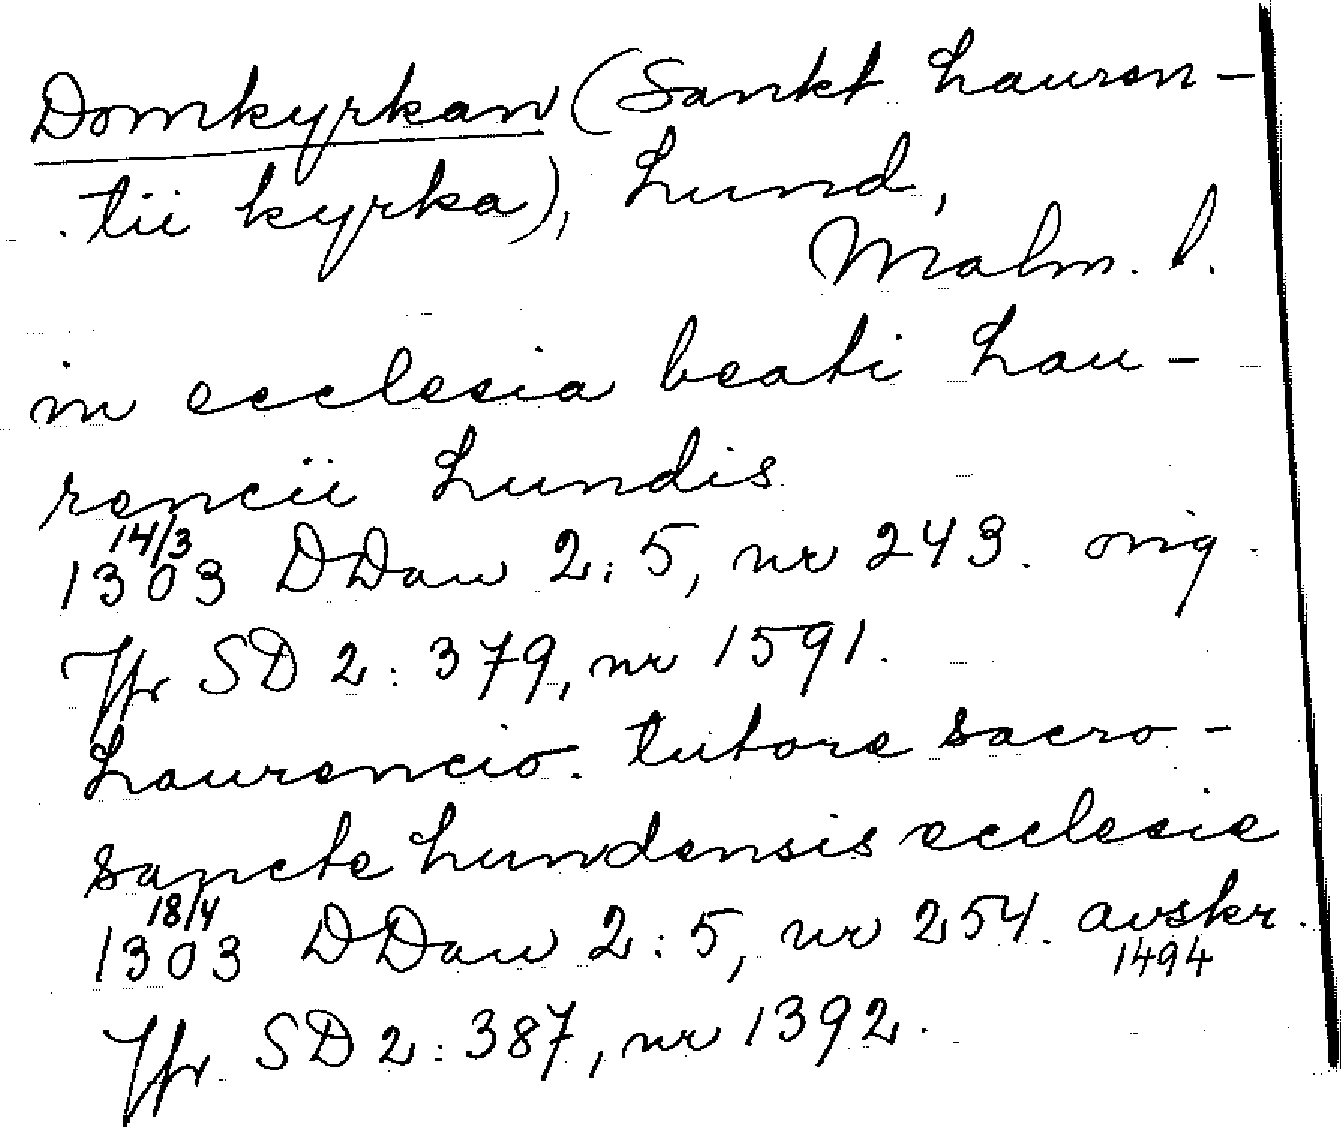 Domkyrkan (Sankt Lauren-
tii kyrka), Lund,
Malm. l.
in ecclesia beati Lau-
rencii Lundis.
14/3
1303 DDan 2:5, nr 243. orig.
Jfr SD 2:379, nr 1591.
Laurencio. tutore sacro-
sancte Lundensis ecclesie
18/4
1303 DDan 2:5, nr 254. avskr.
1494
Jfr SD 2:387, nr 1392.